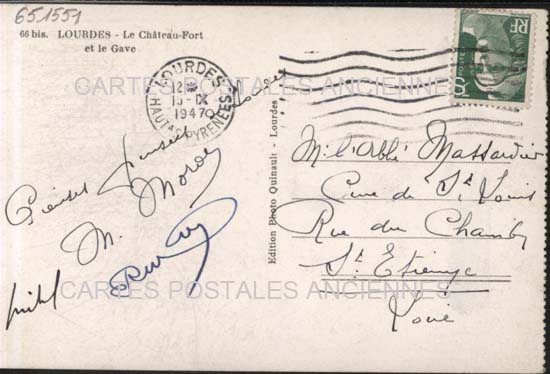 651551
66 bis. LOURDES - Le Château-Fort
et le Gave
LOURDES
12
15-IX
1947
HAUTES PYRENEES
RF
CARTES POSTALES ANCIENNES
Pieuses pensées
M.
Edition Photo Quinault - Lourdes
M. l'Abbé Massardier
Cure de St Louis
Rue du Chambon
St Etienne
Loire
CARTES POSTALES ANCIENNES